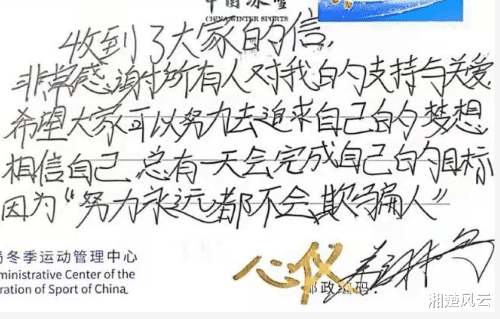 中国冰雪
CHINA WINTER SPORTS
收到了大家的信,
非常感谢所有人对我的支持与关爱
希望大家可以努力去追求自己的梦想
相信自己总有一天会完成自己的目标
因为“努力永远都不会欺骗人”
局冬季运动管理中心
ministrative Center of the
ration of Sport of China.
邮政编码:
湘楚风云